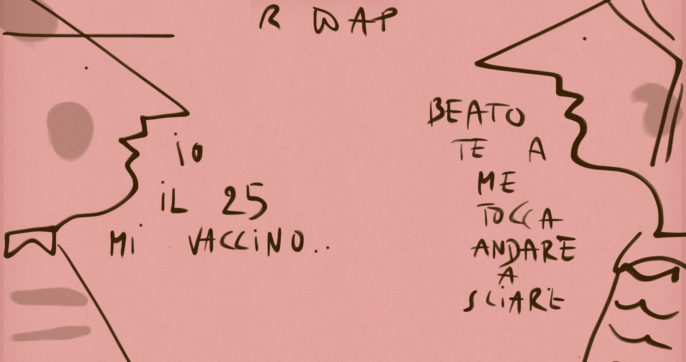 R WAP
iO
iL 25
Mi VACCiNO..
BEATO
TE A
ME
TOCCA
ANDARE
A
SCiARE